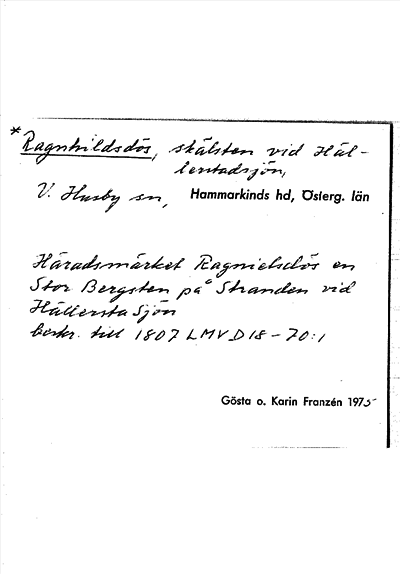 * Ragnhildsdös, skälsten vid Häl-
lerstadsjön,
V. Husby sn, Hammarkinds hd, Österg. län
Häradsmärket Ragnielsdös en
Stor Bergsten på Stranden vid
Hällersta Sjön
beskr. till 1807 LMV D18-70:1
Gösta o. Karin Franzén 1975